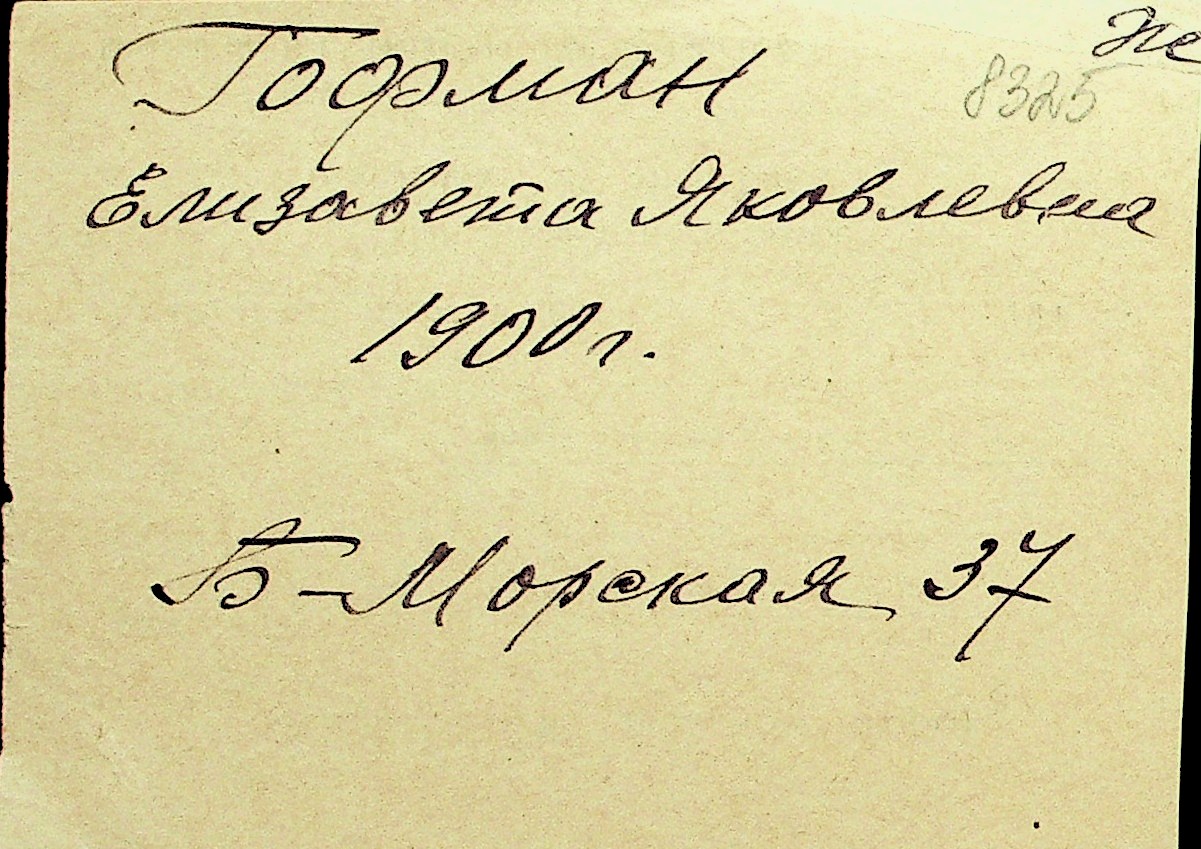 Гофман
8325
Елизавета Яковлевна
1900 г.
Б-Морская 37